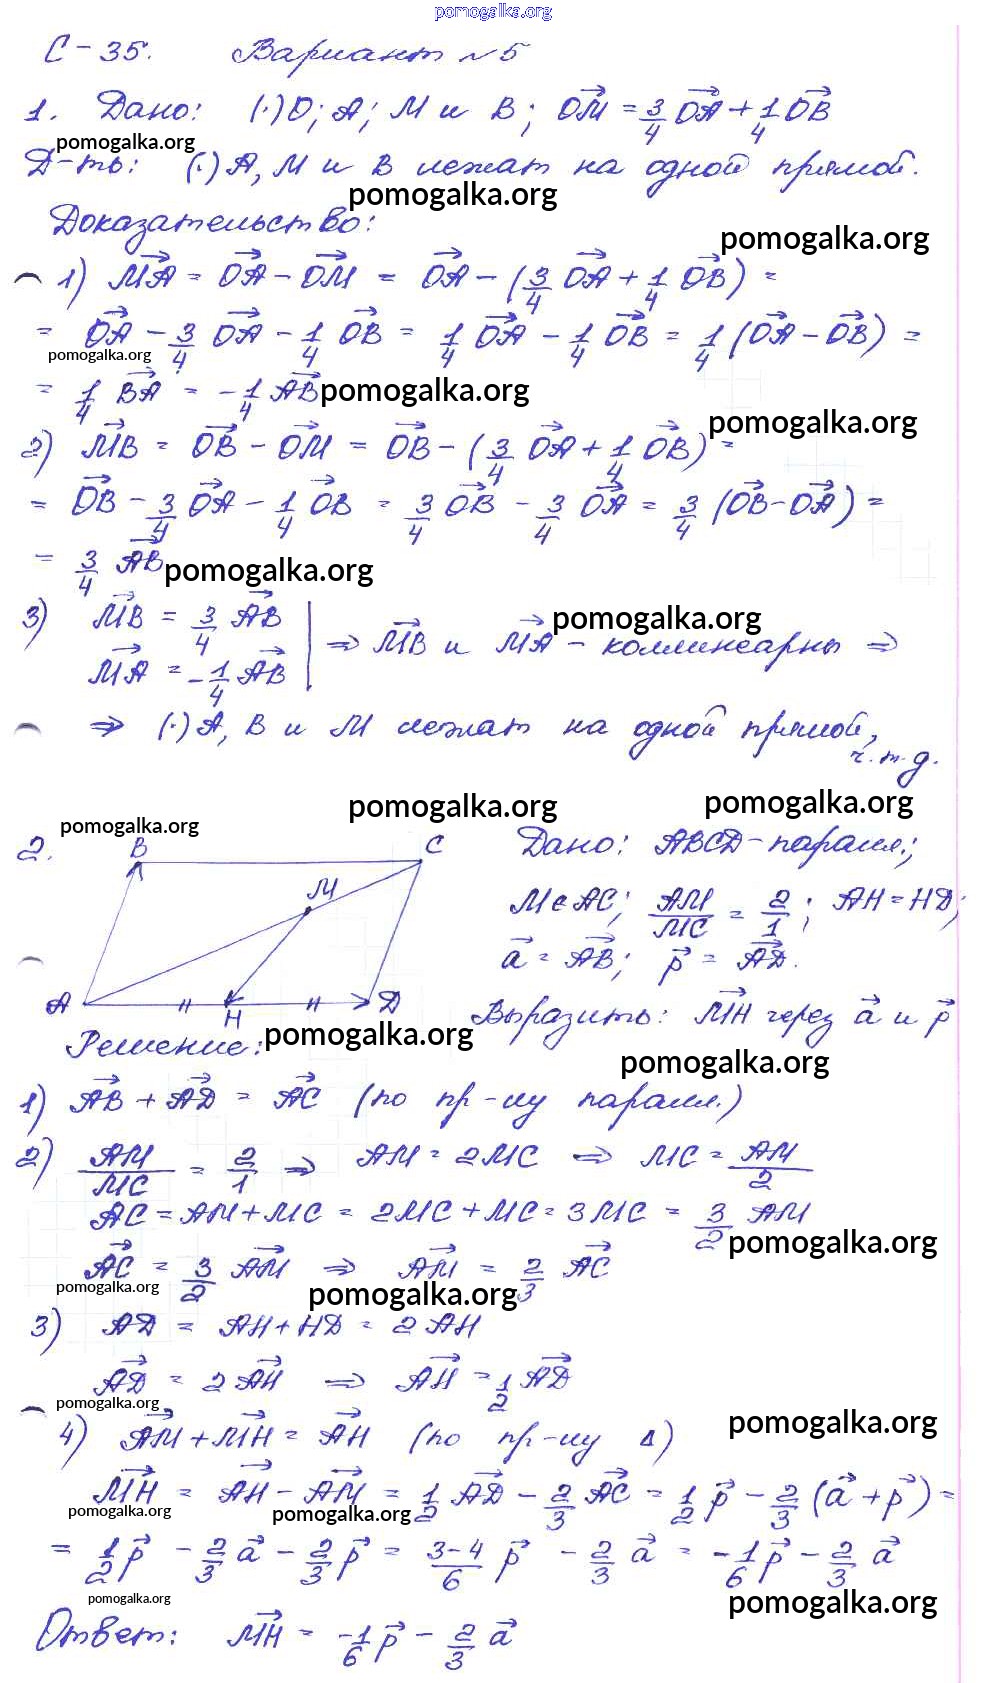 pomogalka.org
С-35. Вариант №5
1. Дано: (·) O; A; M и B; OM = 3/4 OA + 1/4 OB
pomogalka.org
Д-ть: (·) A, M и B лежат на одной прямой.
pomogalka.org
Доказательство:
pomogalka.org
1) MA = OA - OM = OA - (3/4 OA + 1/4 OB) =
= OA - 3/4 OA - 1/4 OB = 1/4 OA - 1/4 OB = 1/4 (OA - OB) =
pomogalka.org
= 1/4 BA = -1/4 AB
pomogalka.org
pomogalka.org
2) MB = OB - OM = OB - (3/4 OA + 1/4 OB) =
= OB - 3/4 OA - 1/4 OB = 3/4 OB - 3/4 OA = 3/4 (OB - OA) =
= 3/4 AB
pomogalka.org
3) MB = 3/4 AB
pomogalka.org
MA = -1/4 AB | ⇒ MB и MA - коллинеарны ⇒
⇒ (·) A, B и M лежат на одной прямой,
ч.т.д.
pomogalka.org
pomogalka.org
pomogalka.org
2. B C M A H D
Дано: ABCD - паралл.;
M ∈ AC; AM/MC = 2/1; AH = HD;
a = AB; p = AD.
Выразить: MH через a и p
pomogalka.org
Решение:
pomogalka.org
1) AB + AD = AC (по пр-лу паралл.)
2) AM/MC = 2/1 ⇒ AM = 2MC ⇒ MC = AM/2
AC = AM + MC = 2MC + MC = 3MC = 3/2 AM
pomogalka.org
AC = 3/2 AM ⇒ AM = 2/3 AC
pomogalka.org
pomogalka.org
3) AD = AH + HD = 2AH
AD = 2AH ⇒ AH = 1/2 AD
pomogalka.org
pomogalka.org
4) AM + MH = AH (по пр-лу Δ)
MH = AH - AM = 1/2 AD - 2/3 AC = 1/2 p - 2/3 (a + p) =
pomogalka.org
pomogalka.org
= 1/2 p - 2/3 a - 2/3 p = 3-4/6 p - 2/3 a = -1/6 p - 2/3 a
pomogalka.org
pomogalka.org
Ответ: MH = -1/6 p - 2/3 a